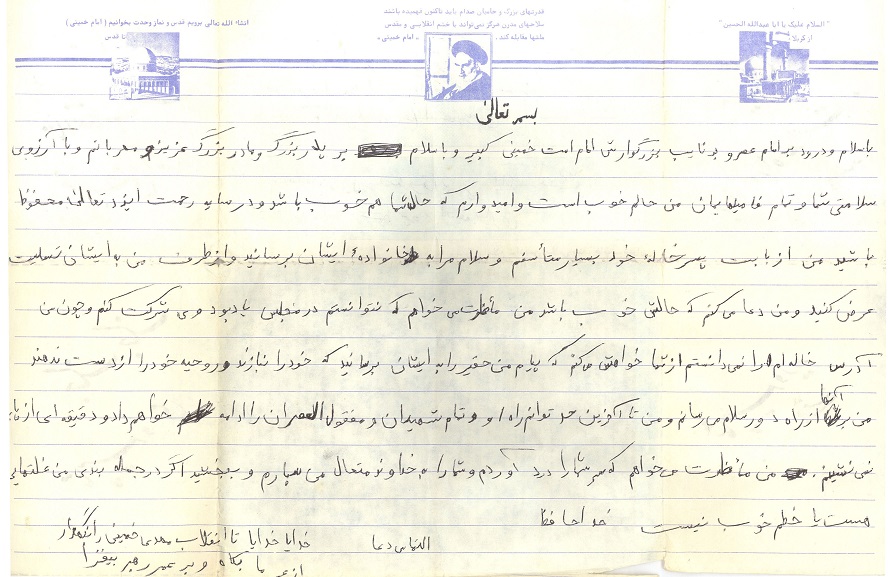 قدرتهای بزرگ و حامیان صدام باید تاکنون فهمیده باشند
سلاحهای مدرن هرگز نمی‌تواند با خشم انقلابی و مقدس
ملتها مقابله کند. « امام خمینی »
انشاء الله تعالی برویم قدس و نماز وحدت بخوانیم ( امام خمینی )
تا قدس
" السلام علیک یا ابا عبدالله الحسین "
از کربلا
بسمه تعالی
با سلام و درود بر امام عصر و بر نایب بزرگوارش امام امت خمینی کبیر و با سلام بر پدر بزرگ و مادر بزرگ عزیز و مهربانم و با آرزوی
سلامتی شما و تمام فامیلهایمان من حالم خوب است و امیدوارم که حال شما هم خوب باشد و در سایه رحمت ایزد تعالی محفوظ
باشید من از بابت پسر خاله خود بسیار متأسفم و سلام مرا به خانواده ایشان برسانید و از طرف من به ایشان تسلیت
عرض کنید و من دعا می کنم که حالش خوب باشد من مأظرت می خواهم که نتوانستم در مجلس یادبود وی شرکت کنم و چون من
آدرس خاله ام را نمی دانستم از شما خواهش می کنم که پیام من حقیر را به ایشان برسانید که خود را نبازند و روحیه خود را از دست ندهند
من بر آنها از راه دور سلام می رسانم و من تا آخرین حد توانم راه او و تمام شهیدان و مفقول العصران را ادامه خواهم داد و دقیقه ای از
نمی نشینم. من مأظرت می خواهم که سر شما را درد آوردم و شما را به خداوند متعال می سپارم و ببخشید اگر در جمله بندی من غلتهایی
هست یا خطم خوب نیست
خدا حافظ
التماس دعا
خدایا خدایا تا انقلاب مهدی خمینی را نگهدار
از عمر ما بکاه و بر عمر رهبر بیفزا